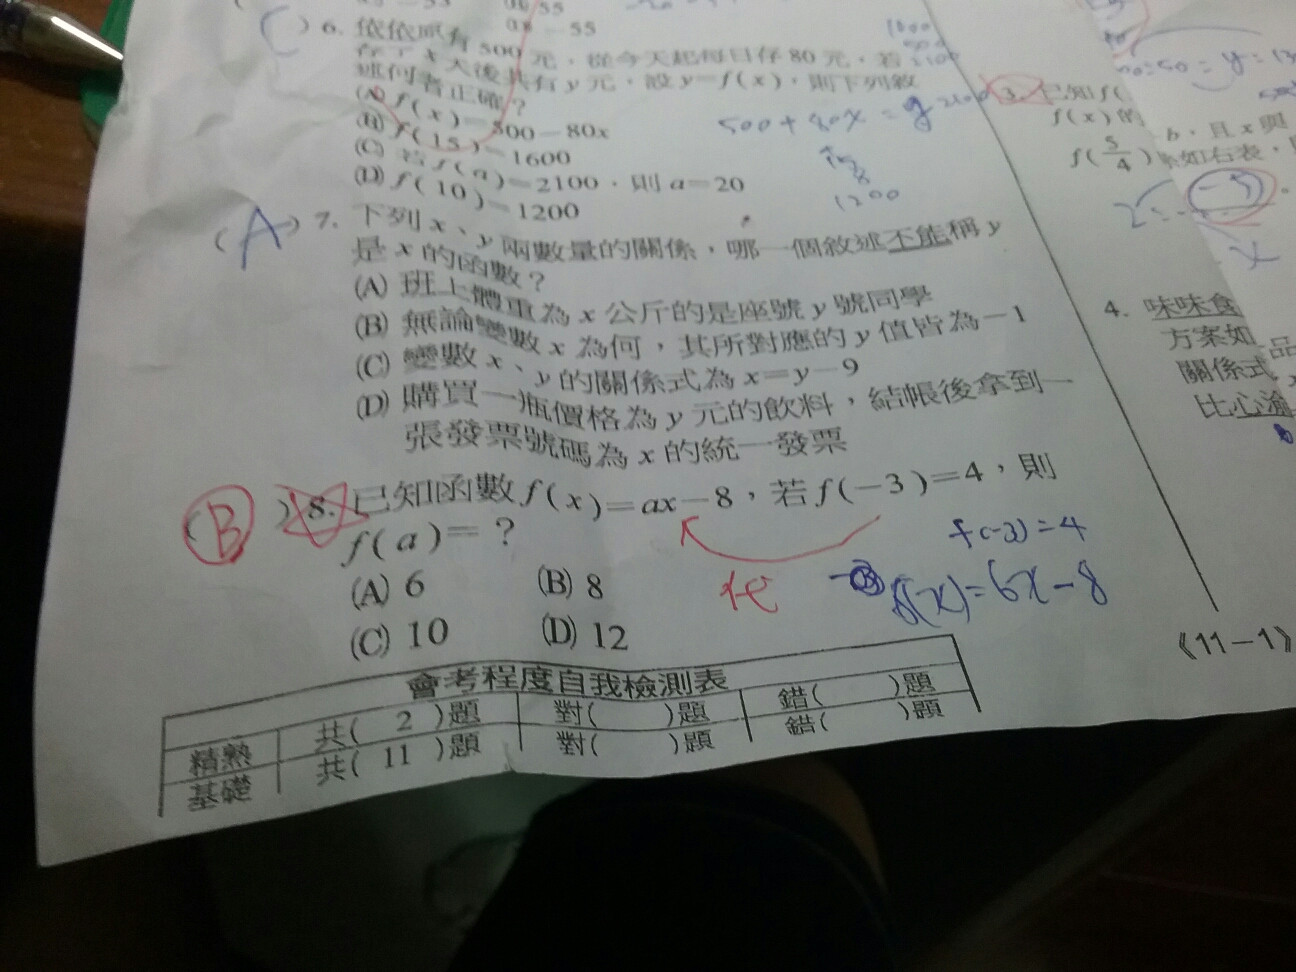 55
55
(C) 6. 依依原有500元，從今天起每日存80元，若
存了x天後共有y元，設y=f(x)，則下列敘
述何者正確？
(A) f(x)=500-80x
(B) f(15)=1600
(C) 若f(a)=2100，則a=20
(D) f(10)=1200
500+80x=y
1200
(A) 7. 下列x、y兩數量的關係，哪一個敘述不能稱y
是x的函數？
(A) 班上體重為x公斤的是座號y號同學
(B) 無論變數x為何，其所對應的y值皆為-1
(C) 變數x、y的關係式為x=y-9
(D) 購買一瓶價格為y元的飲料，結帳後拿到一
張發票號碼為x的統一發票
(B) 8. 已知函數f(x)=ax-8，若f(-3)=4，則
f(a)=？
(A) 6 (B) 8
(C) 10 (D) 12
代
f(-3)=4
f(x)=6x-8
會考程度自我檢測表
精熟 共( 2 )題 對( )題 錯( )題
基礎 共( 11 )題 對( )題 錯( )題
3. 已知f(
f(x)的
b，且x與
f(5/4)
如右表，
4. 味味食
方案如
品
關係式
比心渝
《11-1》